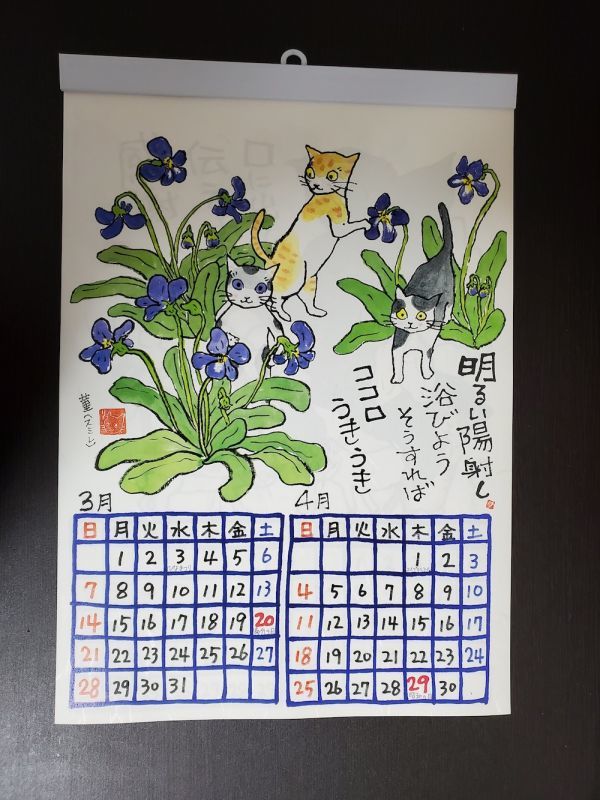 明るい陽射し
浴びよう
そうすれば
ココロ
うきうき
菫(スミレ)
3月
日 月 火 水 木 金 土
1 2 3 4 5 6
7 8 9 10 11 12 13
14 15 16 17 18 19 20
21 22 23 24 25 26 27
28 29 30 31
4月
日 月 火 水 木 金 土
1 2 3
4 5 6 7 8 9 10
11 12 13 14 15 16 17
18 19 20 21 22 23 24
25 26 27 28 29 30